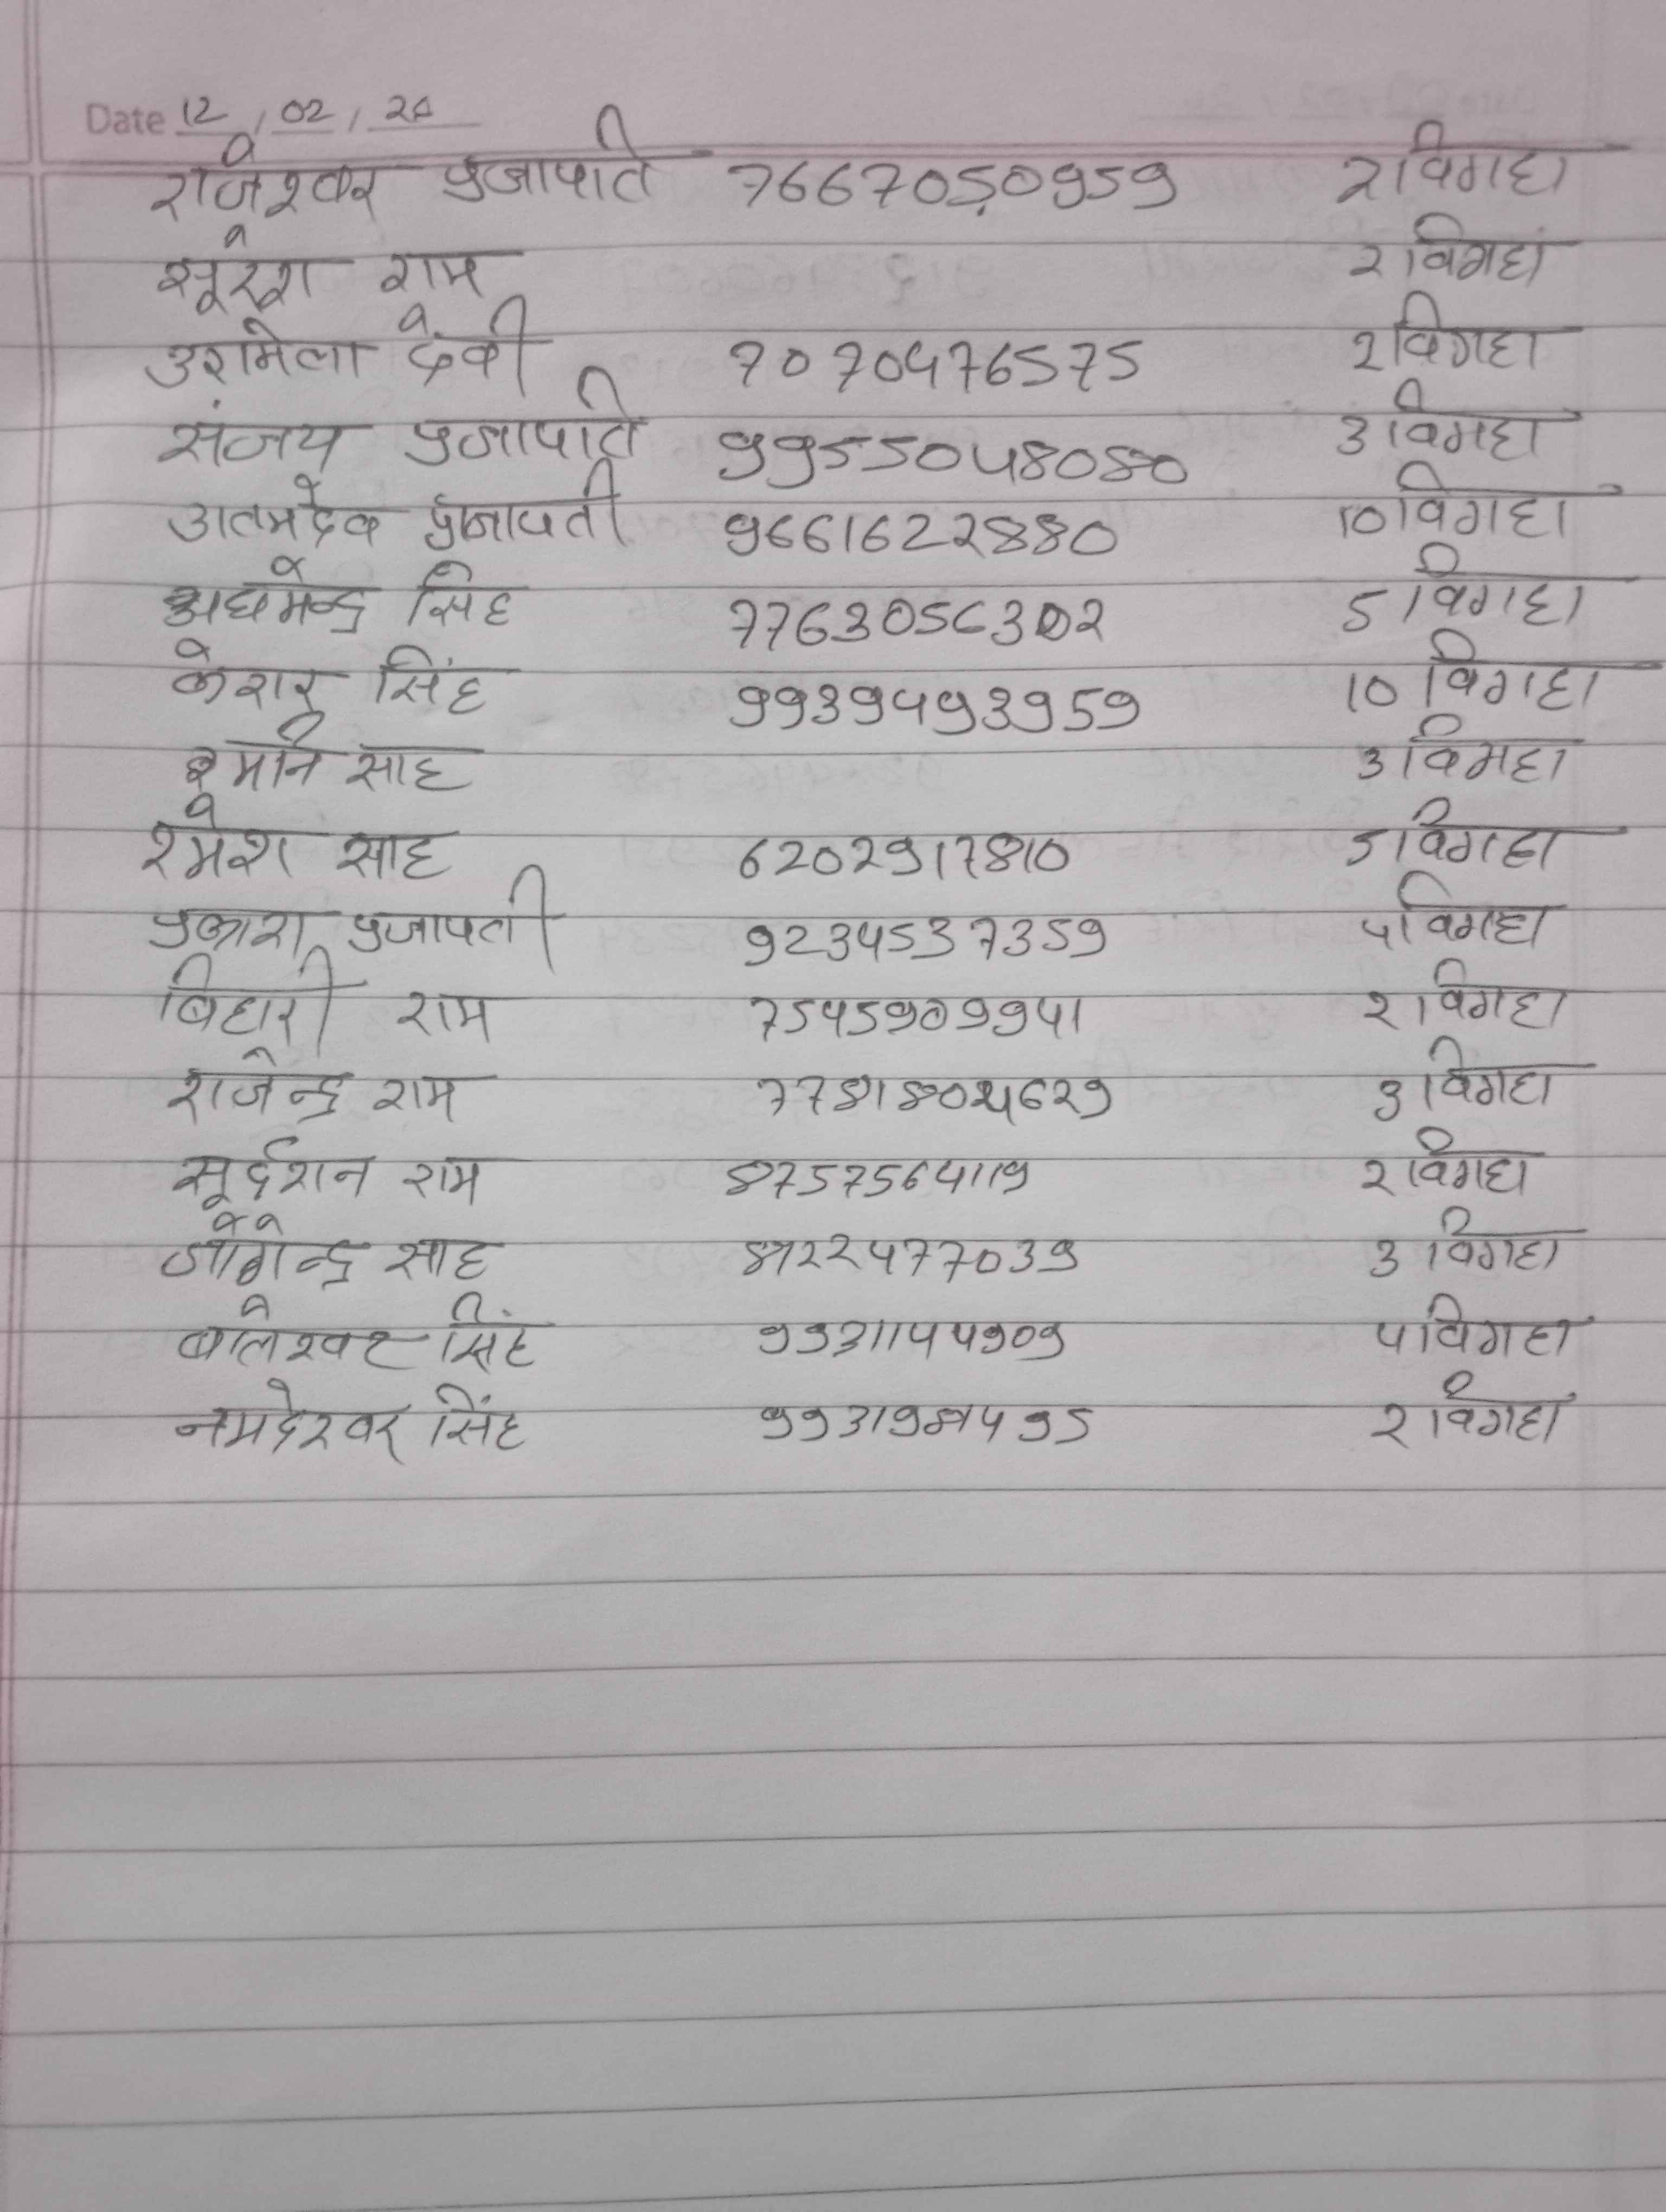 Date 12 / 02 / 24
राजेश्वर प्रजापति 7667050959 2 विगहा
सूरेश राम 2 विगहा
उरमिला देवी 7070476575 2 विगहा
संजय प्रजापति 9955048080 3 विगहा
आतमदेव प्रजापती 9661622880 10 विगहा
धर्मेन्द्र सिंह 7763056302 5 विगहा
केशर सिंह 9939493959 10 विगहा
इमनि साह 3 विगहा
रमेश साह 6202917810 5 विगहा
प्रकाश प्रजापती 9234537359 4 विगहा
बिहारी राम 7545909941 2 विगहा
राजेन्द्र राम 3 विगहा
सूर्दशन राम 8757564119 2 विगहा
जोगेन्द्र साह 3 विगहा
बालेश्वर सिंह 9931144909 4 विगहा
नमदेश्वर सिंह 2 विगहा